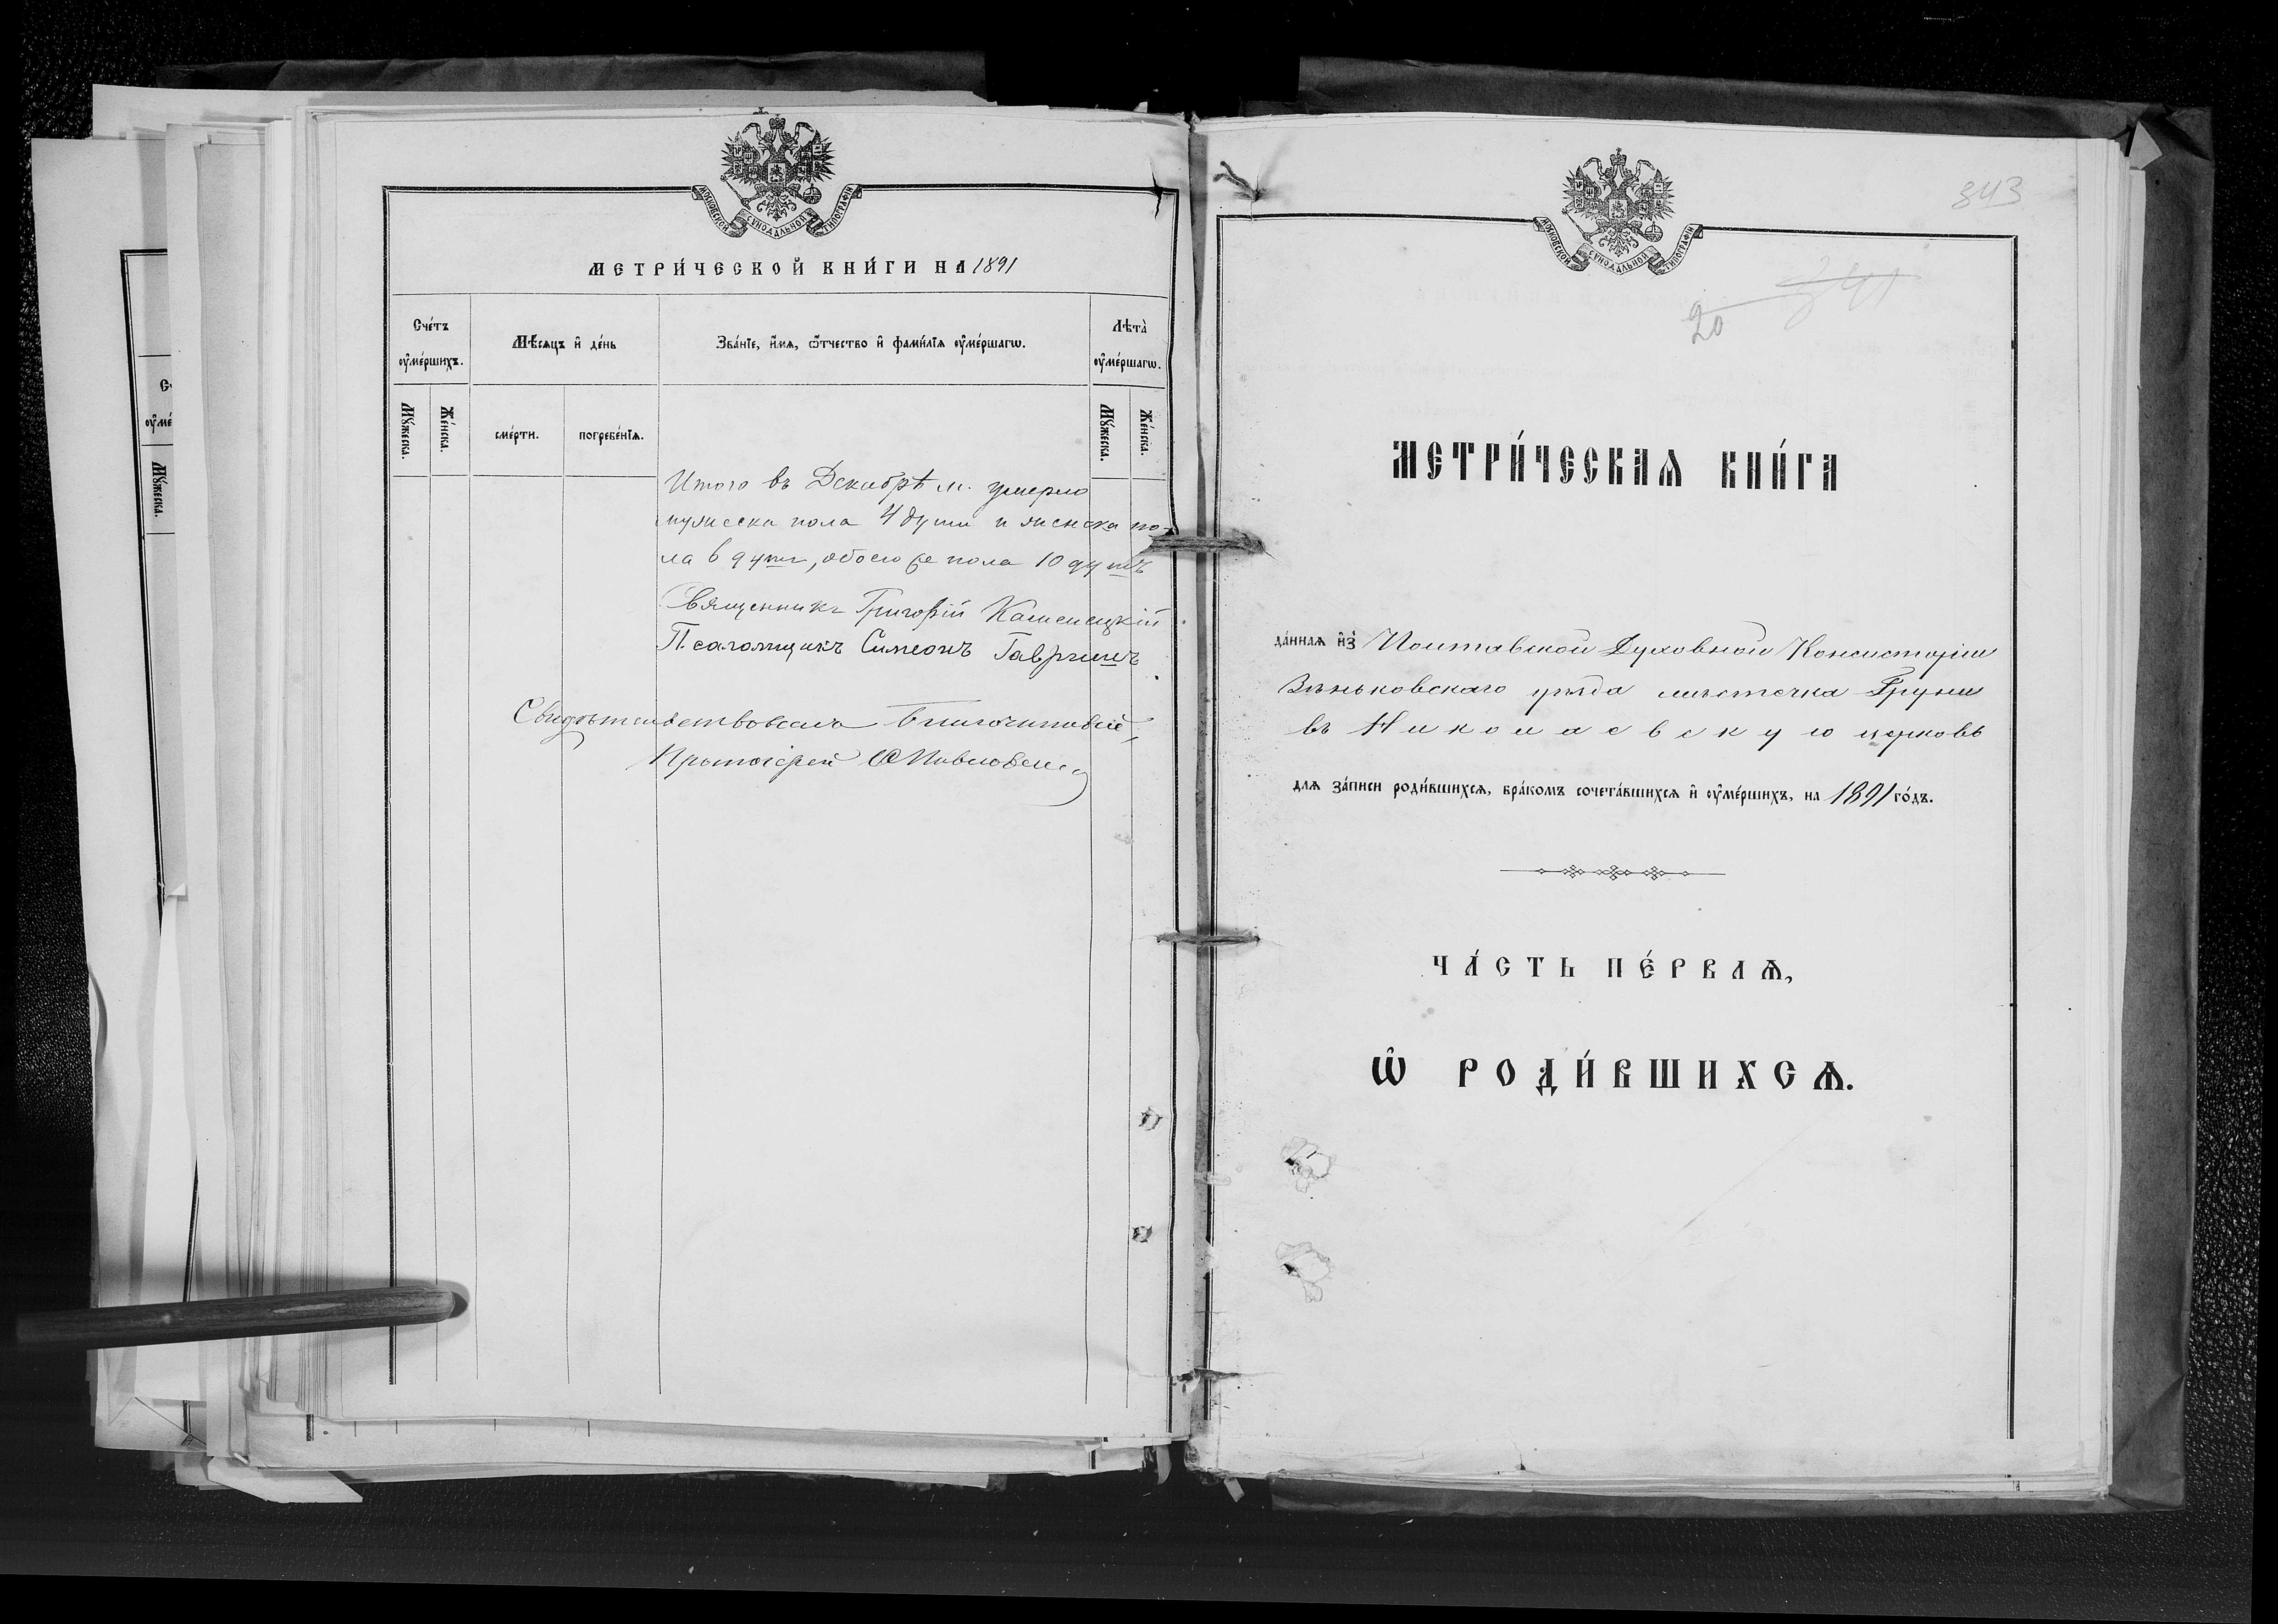 МОСКОВСКОЙ СѴНОДАЛЬНОЙ ТИПОГРАФІИ
МЕТРИ́ЧЕСКОЙ КНИ́ГИ НА 1891
Сче́тъ ᲂу҆ме́ршихъ.
Мѣ́сяцъ и҆ де́нь
Зва́нїе, и҆́мѧ, ѻ҆́тчество и҆ фами́лїѧ ᲂу҆ме́ршагѡ.
Лѣта̀ ᲂу҆ме́ршагѡ.
Мꙋ́жеска.
Же́нска.
сме́рти.
погребе́нїѧ.
Мꙋ́жеска.
Же́нска.
Итого въ Декабрѣ м. умерло
мужеска пола 4 души и женска по-
ла 6 душъ, обоего же пола 10 душъ
Священникъ Григорій Каменецкій
Псаломщикъ Симеонъ Гавришъ
Свидѣтельствовалъ Благочинный,
Протоіерей
343
341
20
МОСКОВСКОЙ СѴНОДАЛЬНОЙ ТИПОГРАФІИ
МЕТРИ́ЧЕСКАѦ КНИ́ГА
да́ннаѧ и҆з̾ Полтавской Духовной Консисторіи
Зѣньковскаго уѣзда мѣстечка Груни
въ Николаевскую церковь
длѧ за́писи роди́вшихсѧ, бра́комъ сочета́вшихсѧ и҆ ᲂу҆ме́ршихъ, на 1891 го́дъ.
ЧА́СТЬ ПЕ́РВАѦ,
Ѡ҆ РОДИ́ВШИХСѦ.